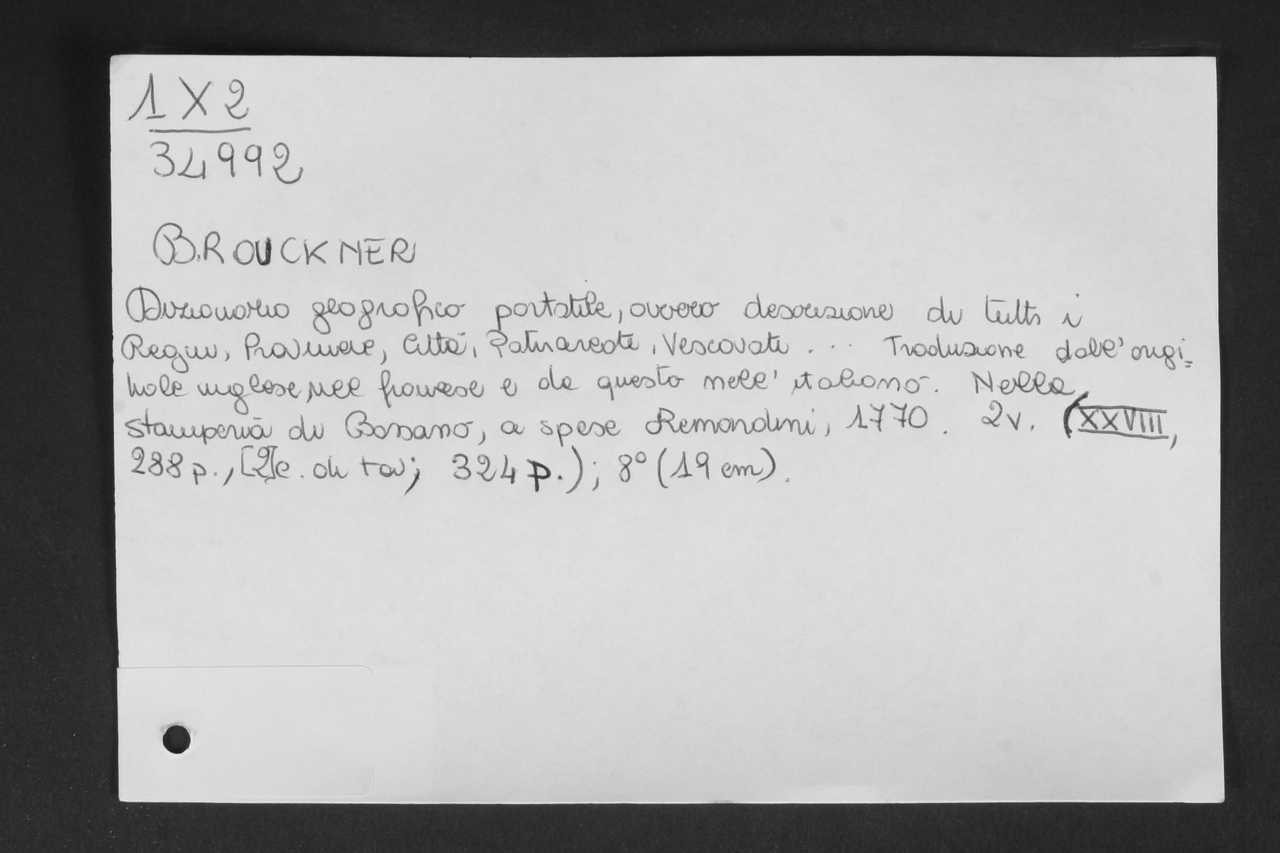 1 X 2
34992
BROUCKNER
Dizionario geografico portatile, ovvero descrizione di tutti i
Regni, Provincie, Città, Patriarcati, Vescovati ... Traduzione dall'origi=
nale inglese, nel francese e da questo nell'italiano. Nella
stamperia di Bassano, a spese Remondini, 1770. 2v. (XXVIII,
288 p., [2]c. di tav; 324 p.); 8° (19 cm).